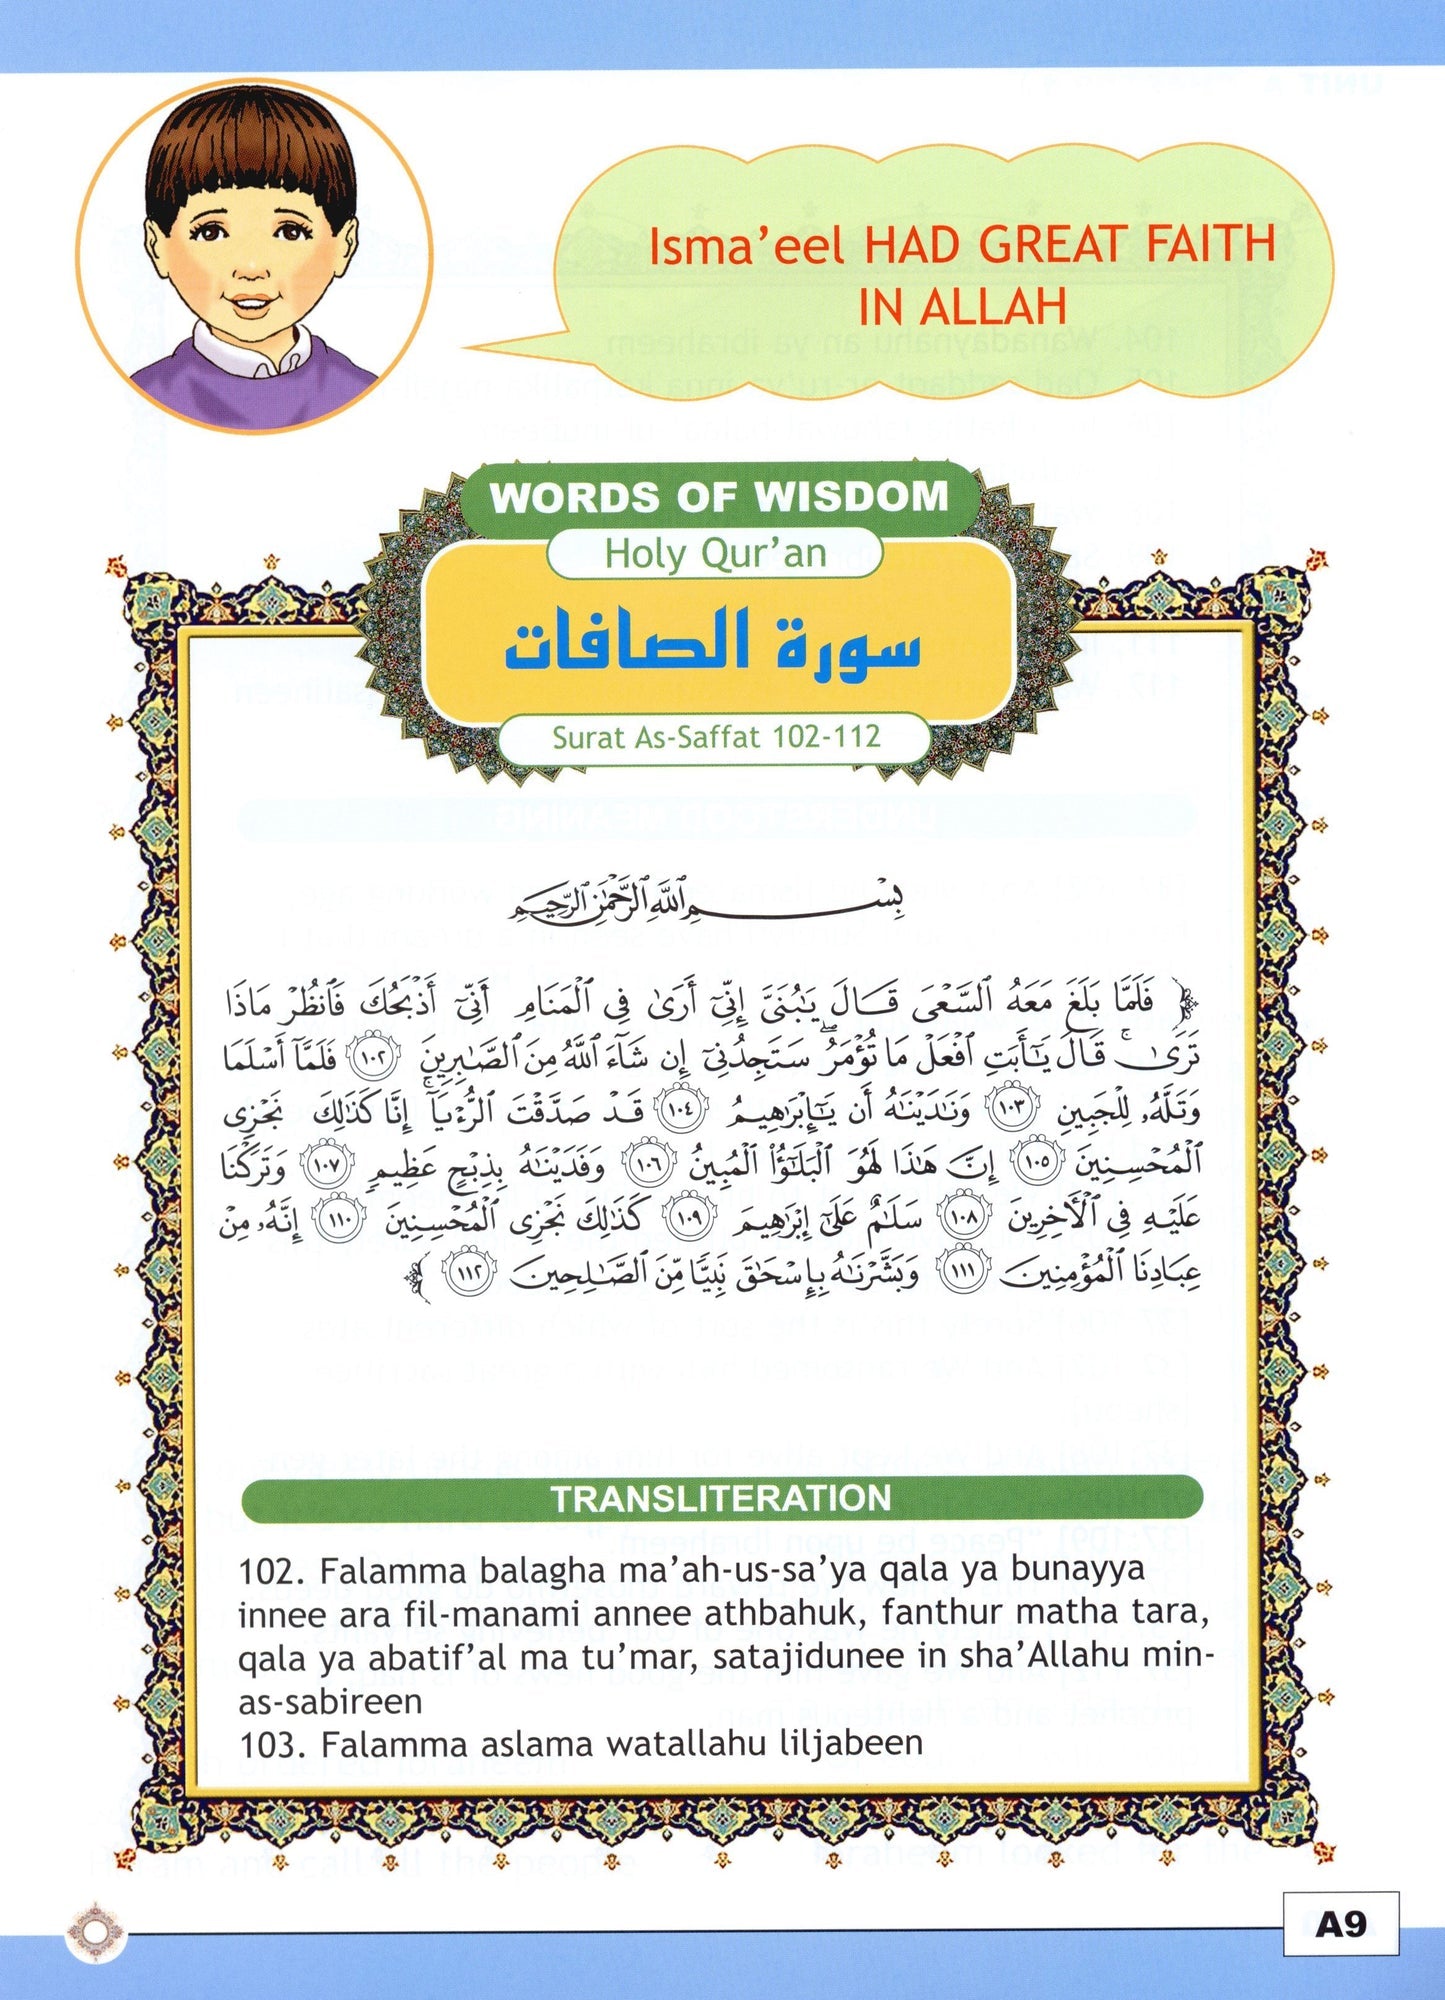 Isma’eel HAD GREAT FAITH
IN ALLAH
WORDS OF WISDOM
Holy Qur’an
سورة الصافات
Surat As-Saffat 102-112
بِسْمِ ٱللَّهِ ٱلرَّحْمَٰنِ ٱلرَّحِيمِ
﴿ فَلَمَّا بَلَغَ مَعَهُ ٱلسَّعْىَ قَالَ يَٰبُنَىَّ إِنِّىٓ أَرَىٰ فِى ٱلْمَنَامِ أَنِّىٓ أَذْبَحُكَ فَٱنظُرْ مَاذَا
تَرَىٰ ۚ قَالَ يَٰٓأَبَتِ ٱفْعَلْ مَا تُؤْمَرُ ۖ سَتَجِدُنِىٓ إِن شَآءَ ٱللَّهُ مِنَ ٱلصَّٰبِرِينَ ١٠٢ فَلَمَّآ أَسْلَمَا
وَتَلَّهُۥ لِلْجَبِينِ ١٠٣ وَنَٰدَيْنَٰهُ أَن يَٰٓإِبْرَٰهِيمُ ١٠٤ قَدْ صَدَّقْتَ ٱلرُّءْيَآ ۚ إِنَّا كَذَٰلِكَ نَجْزِى
ٱلْمُحْسِنِينَ ١٠٥ إِنَّ هَٰذَا لَهُوَ ٱلْبَلَٰٓؤُا۟ ٱلْمُبِينُ ١٠٦ وَفَدَيْنَٰهُ بِذِبْحٍ عَظِيمٍ ١٠٧ وَتَرَكْنَا
عَلَيْهِ فِى ٱلْءَاخِرِينَ ١٠٨ سَلَٰمٌ عَلَىٰٓ إِبْرَٰهِيمَ ١٠٩ كَذَٰلِكَ نَجْزِى ٱلْمُحْسِنِينَ ١١٠ إِنَّهُۥ مِنْ
عِبَادِنَا ٱلْمُؤْمِنِينَ ١١١ وَبَشَّرْنَٰهُ بِإِسْحَٰقَ نَبِيًّا مِّنَ ٱلصَّٰلِحِينَ ١١٢ ﴾
TRANSLITERATION
102. Falamma balagha ma’ah-us-sa’ya qala ya bunayya
innee ara fil-manami annee athbahuk, fanthur matha tara,
qala ya abatif’al ma tu’mar, satajidunee in sha’Allahu min-
as-sabireen
103. Falamma aslama watallahu liljabeen
A9